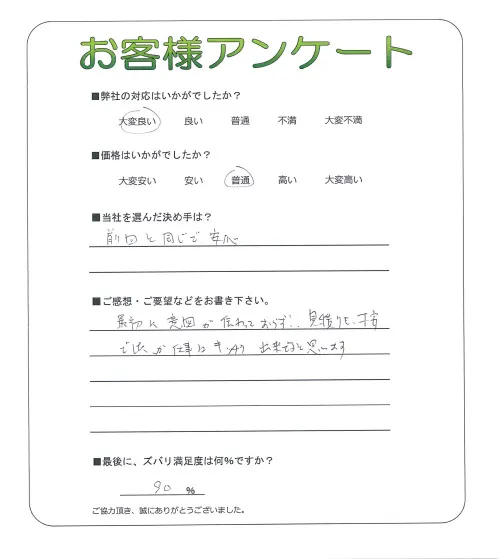 お客様アンケート
■弊社の対応はいかがでしたか？
大変良い 良い 普通 不満 大変不満
■価格はいかがでしたか？
大変安い 安い 普通 高い 大変高い
■当社を選んだ決め手は？
前回と同じで安心
■ご感想・ご要望などをお書き下さい。
最初は意図が伝わっておらず、見積りも不安
でしたが仕事はキッチリ出来たと思います
■最後に、ズバリ満足度は何%ですか？
90 %
ご協力頂き、誠にありがとうございました。